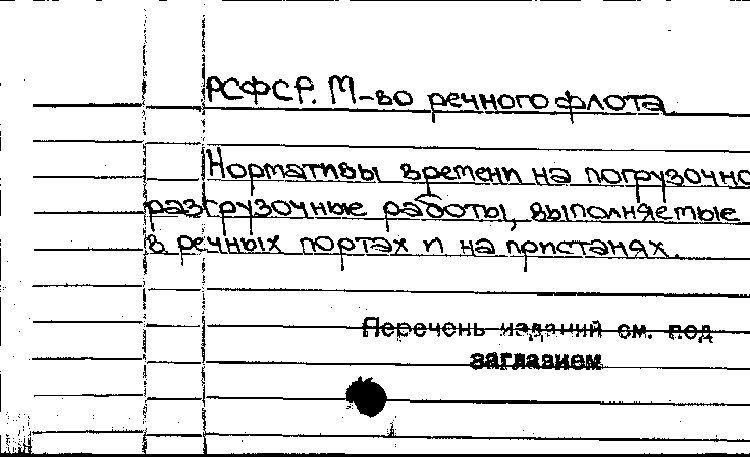 РСФСР. М-во речного флота.
Нормативы времени на погрузочно
разгрузочные работы, выполняемые
в речных портах и на пристанях.
Перечень изданий см. под
заглавием